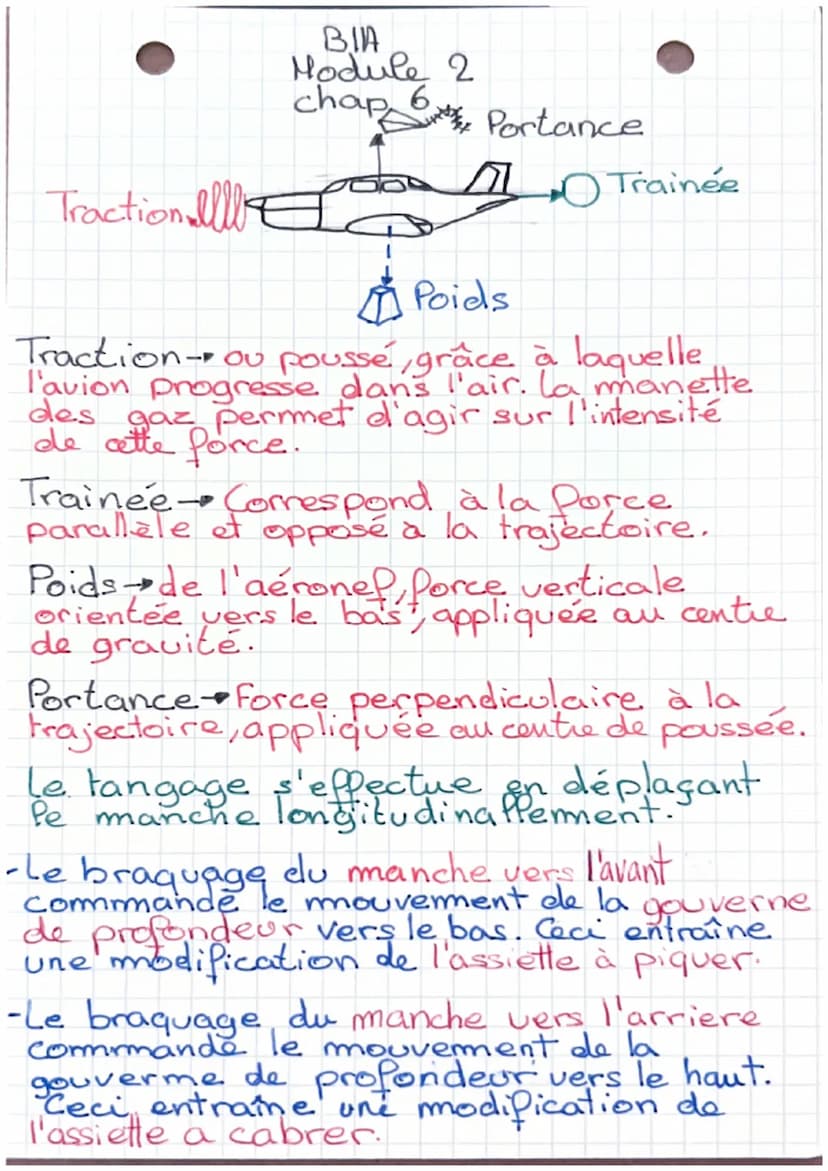 BIA
Module 2
chap 6
Portance
Trainée
Traction
Poids
Traction→ ou poussé, grâce à laquelle
l'avion progresse dans l'air. La manette
des gaz permet d'agir sur l'intensité
de cette force.
Trainée→ Correspond à la force
parallèle et opposé à la trajectoire.
Poids→ de l'aéronef, force verticale
orientée vers le bas, appliquée au centre
de gravité.
Portance→ Force perpendiculaire à la
trajectoire, appliquée au centre de poussée.
Le tangage s'effectue en déplaçant
le manche longitudinallement.
-Le braquage du manche vers l'avant
commande le mouvement de la gouverne
de profondeur vers le bas. Ceci entraîne
une modification de l'assiette à piquer.
-Le braquage du manche vers l'arriere
commande le mouvement de la
gouverme de profondeur vers le haut.
Ceci entraîne une modification de
l'assiette a cabrer.